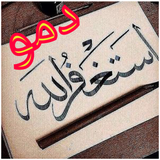 دمو
أستغفر الله